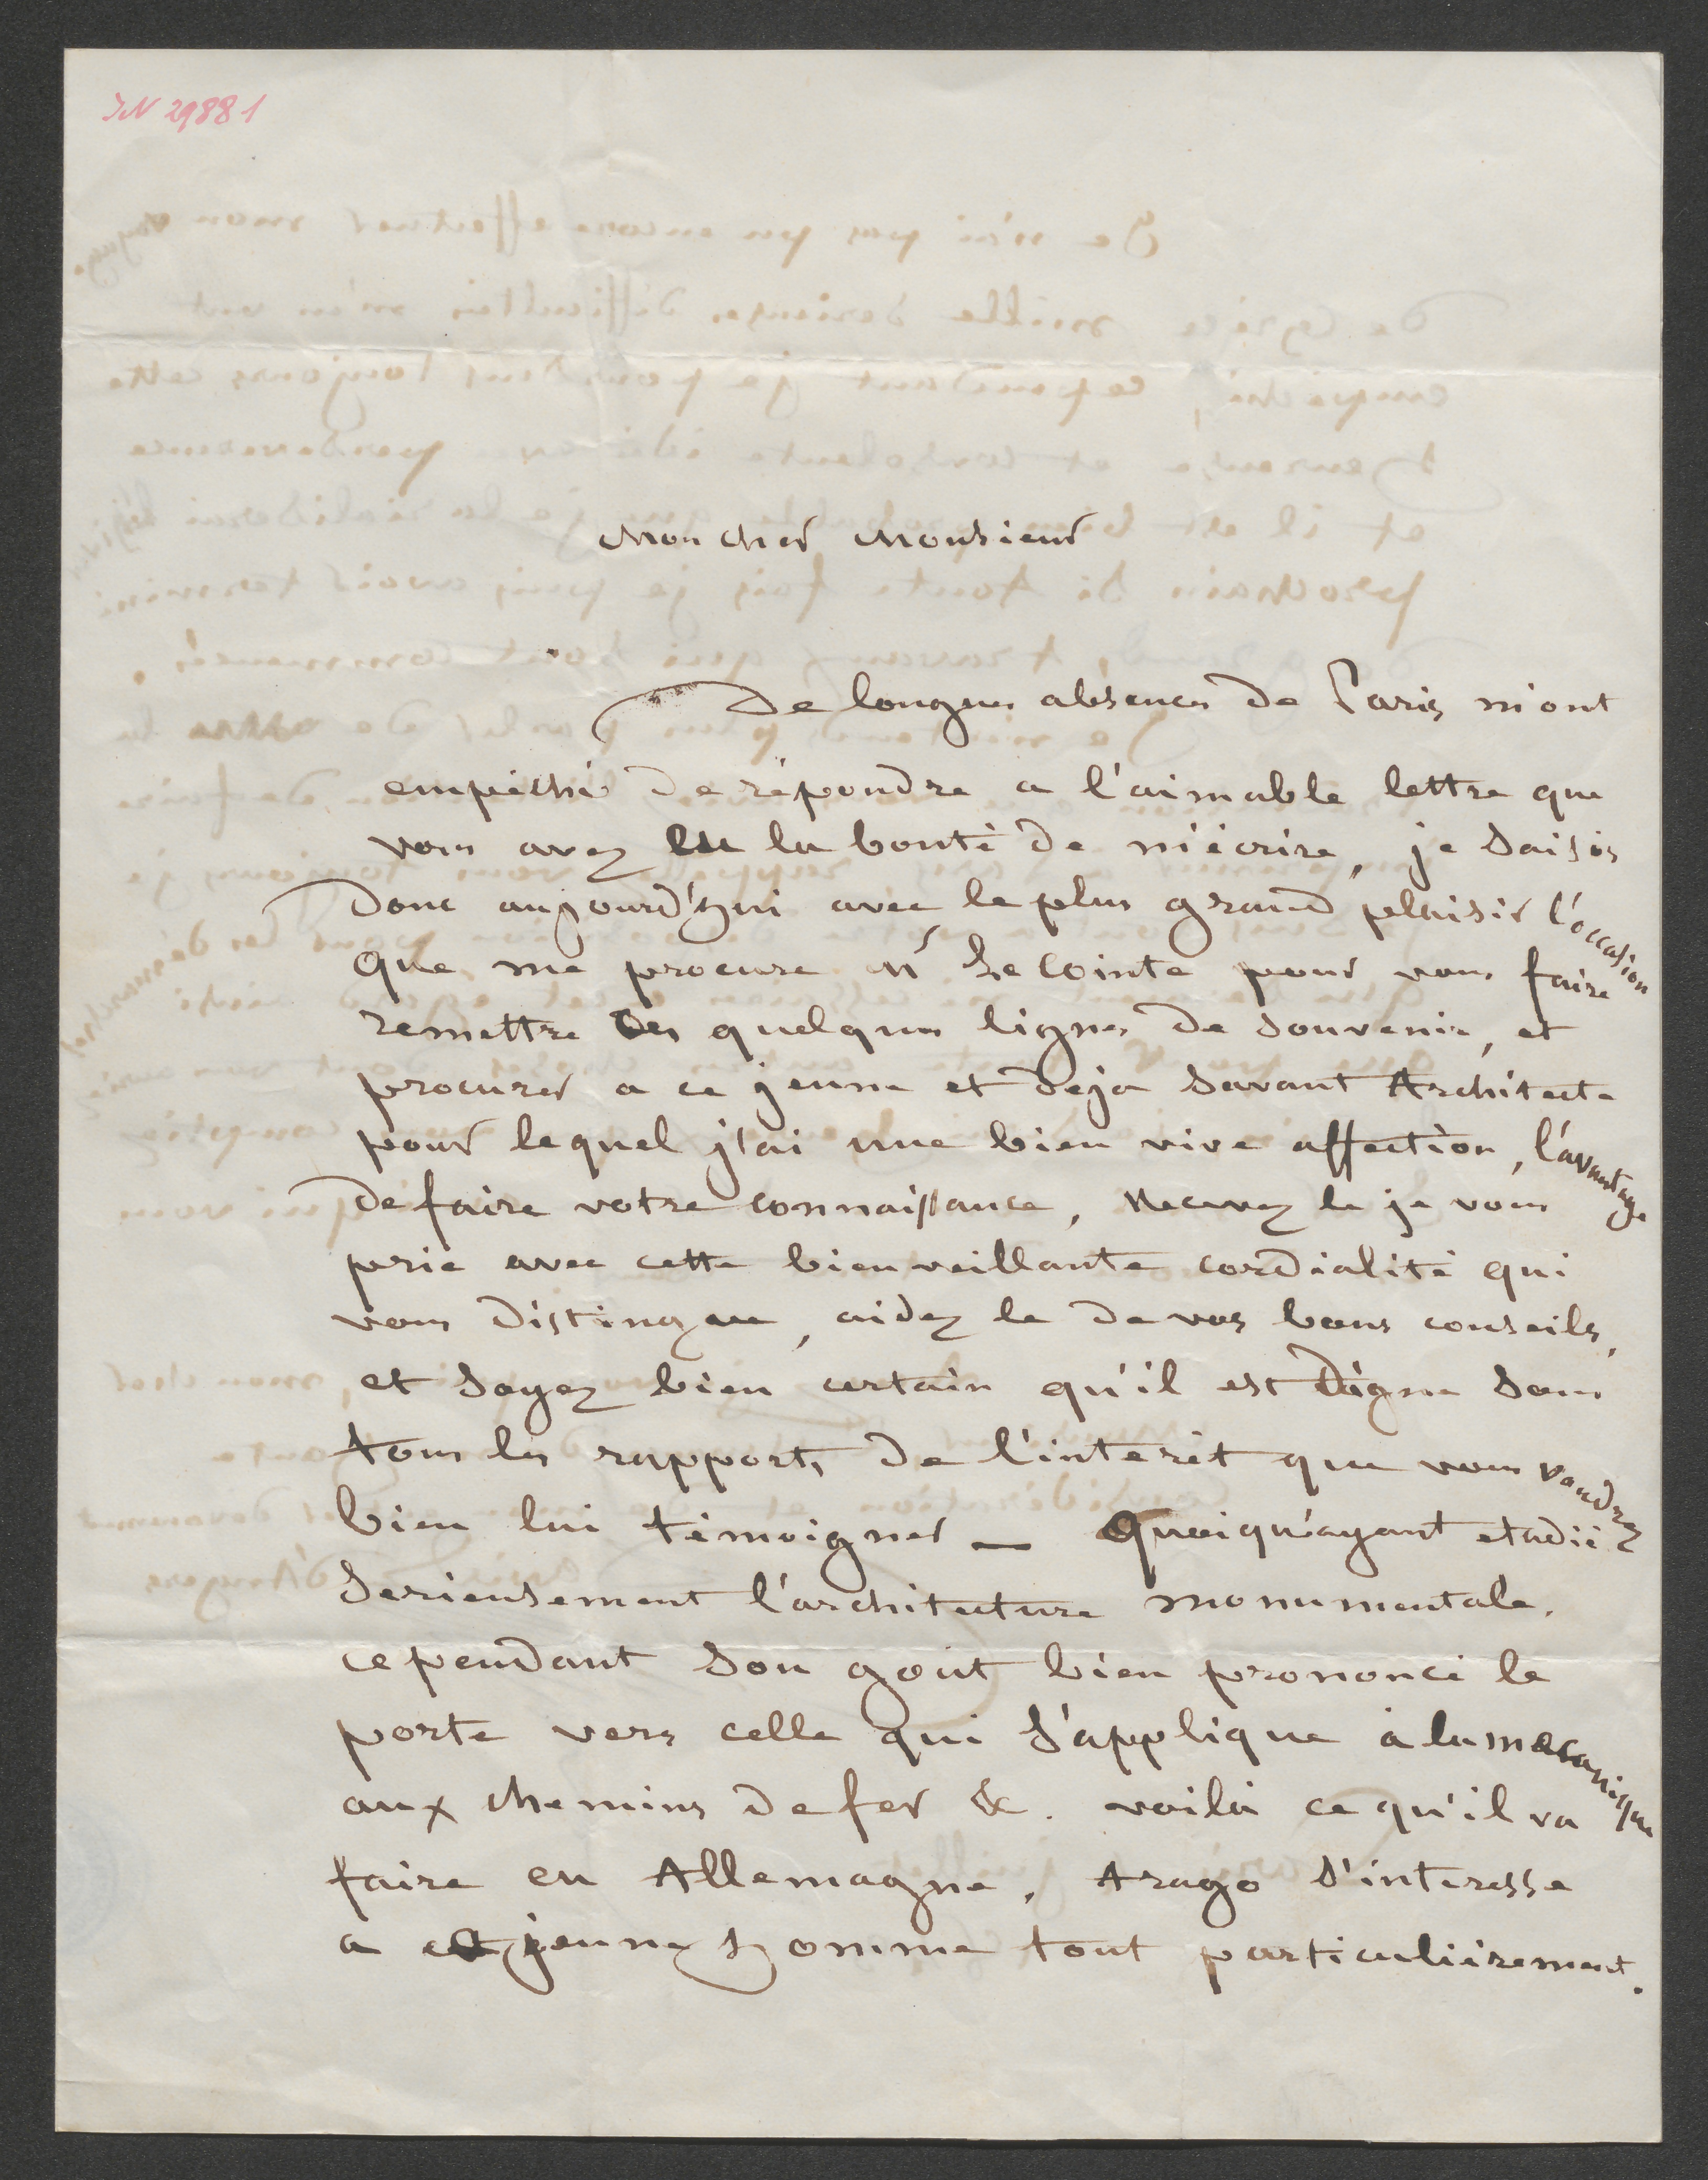 IN 29881
Mon cher Monsieur
De longues absences de Paris m'ont
empéché de répondre a l'aimable lettre que
vous avez eu la bonté de m'écrire, je saisis
donc aujourd'hui avec le plus grand plaisir l'occasion
que me procure Mr Le Cointe pour vous faire
remettre ces quelques lignes de souvenir, et
procurer a ce jeune et deja savant Architecte
pour lequel j'ai une bien vive affection, l'avantage
de faire votre connaissance, Recevez le je vous
prie avec cette bienveillante cordialité qui
vous distingue, aidez le de vos bons conseils,
et soyez bien certain qu'il est digne sous
tous les rapports de l'interêt que vous voudrez
bien lui témoigner — Quoiqu'ayant etudié
serieusement l'architecture monumentale.
cependant son gout bien prononcé le
porte vers celle qui s'applique à la mecanique
aux chemins de fer &. voilà ce qu'il va
faire en Allemagne, Arago s'interesse
a ce jeune homme tout particulièrement.